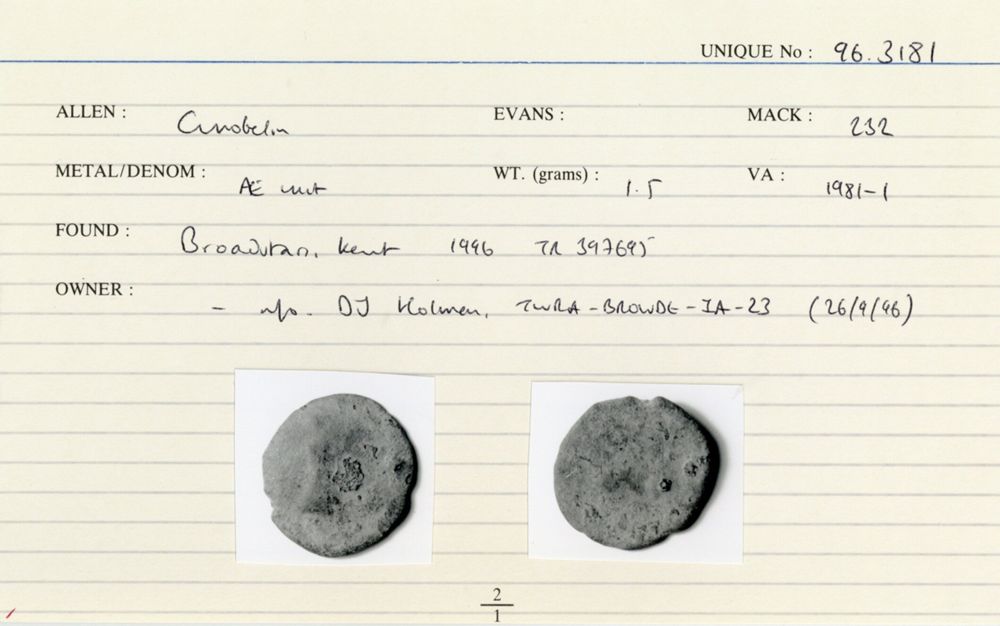 UNIQUE No : 96.3181
ALLEN : Cunobelin EVANS : MACK : 232
METAL/DENOM : Æ unit WT. (grams) : 1.5 VA : 1981-1
FOUND : Kent 1996 TR 397695
OWNER : - DJ Holman, - IA - 23 (26/9/96)
2
1